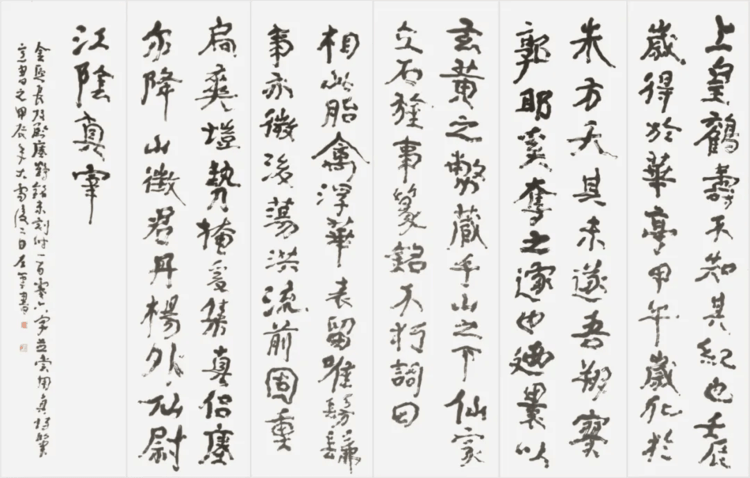 上皇鶴壽不知其紀也壬辰
歲得於華亭甲午歲化於
朱方天其未遂吾翔寥
廓耶奚奪之遽也廼裹以
玄黄之幣藏乎山之下仙家
立石旌事篆銘不朽詞曰
相此胎禽浮華表留唯髣髴
事亦微後蕩洪流前固重
扃爽塏勢掩爰集真侶瘞
尔降山徵君丹楊外仙尉
江陰真宰
瘞鶴銘未刻 一百零六字
書之甲辰冬大雪後二日 書